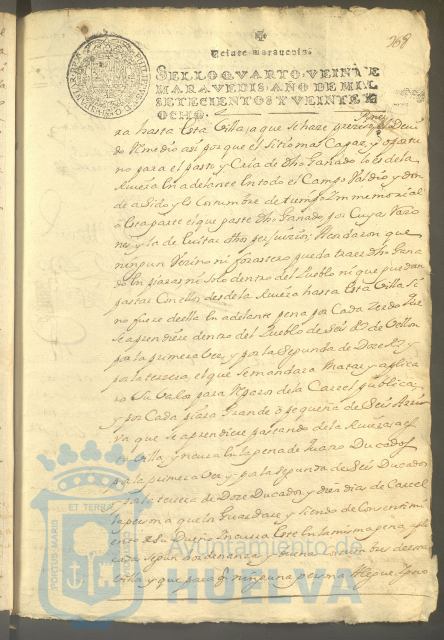 368
Veinte maravedis.
SELLO QVARTO, VEINTE
MARAVEDIS, AÑO DE MIL
SETECIENTOS Y VEINTE Y
OCHO.
ra hasta esta Villa, a que se haze preciso el Devi
do Remedio asi por que el sitio mas Capaz, y oportu
no para el pasto y Cria de dho Ganado lo es de la
Rivera en adelante en todo el Campo Valdio y don
de a Sido y es Costumbre de tiempo Inmemorial
a esta parte el que paste dho Ganado por Cuyas Razo
nes y la de Evitar dhos perjuizios; Acordaron que
ningun Vezino ni forastero pueda traer dho Gana
do en piaras ni solo dentro del Pueblo ni que puedan
pastar Con ellos desde la Rivera hasta esta Villa si
no fuere de ella en adelante pena por Cada Zerdo que
se aprendiere dentro del Pueblo de Seis Rs de Vellon
por la primera Vez, y por la Segunda de Doze Rs y
por la terzera, el que se mandara Matar y aplica
ra su Valor para Reparos de la Carzel publica,
y por Cada piara Grande o pequeña de
va que se aprendiere pastando de la Rivera a es
ta Villa, yncurra en la pena de quatro Ducados
por la primera Vez y por la segunda de Seis Ducados
y por la terzera de Doze Ducados, y diez dias de Carzel
la persona que lo Guardare y siendo de Consentimi
ento de su Dueño Incurra este en la misma pena
cada
Villa y que para q ninguna persona Alegue Igno
PORTUS MARIS
ET TERRAE
Ayuntamiento de
HUELVA